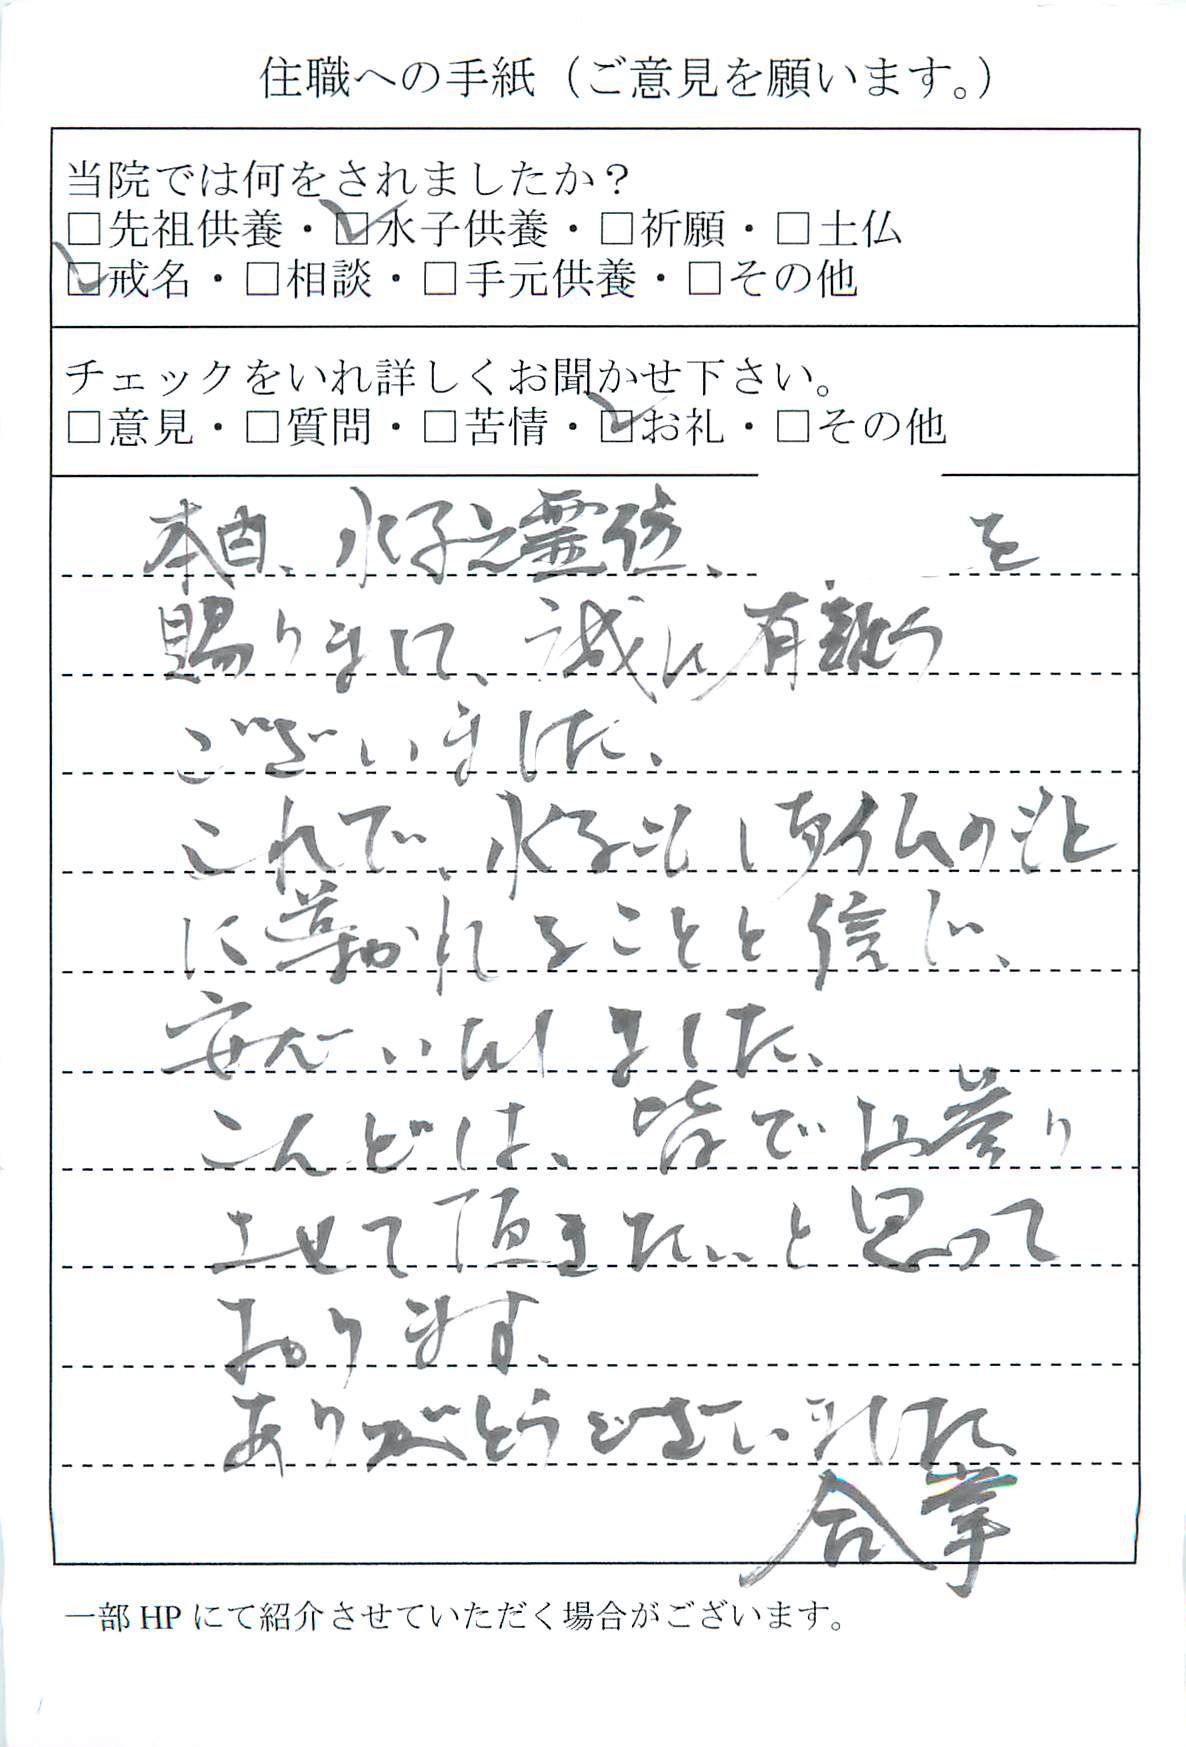 住職への手紙（ご意見を願います。）
当院では何をされましたか？
□先祖供養・☑水子供養・□祈願・□土仏
☑戒名・□相談・□手元供養・□その他
チェックをいれ詳しくお聞かせ下さい。
□意見・□質問・□苦情・☑お礼・□その他
本日、水子之霊位、 を
賜りまして、誠に有難う
ございました。
これで、水子も御仏のもと
に導かれることと信じ、
安心いたしました。
こんどは、皆でお参り
させて頂きたいと思って
おります。
ありがとうございました
合掌
一部 HP にて紹介させていただく場合がございます。